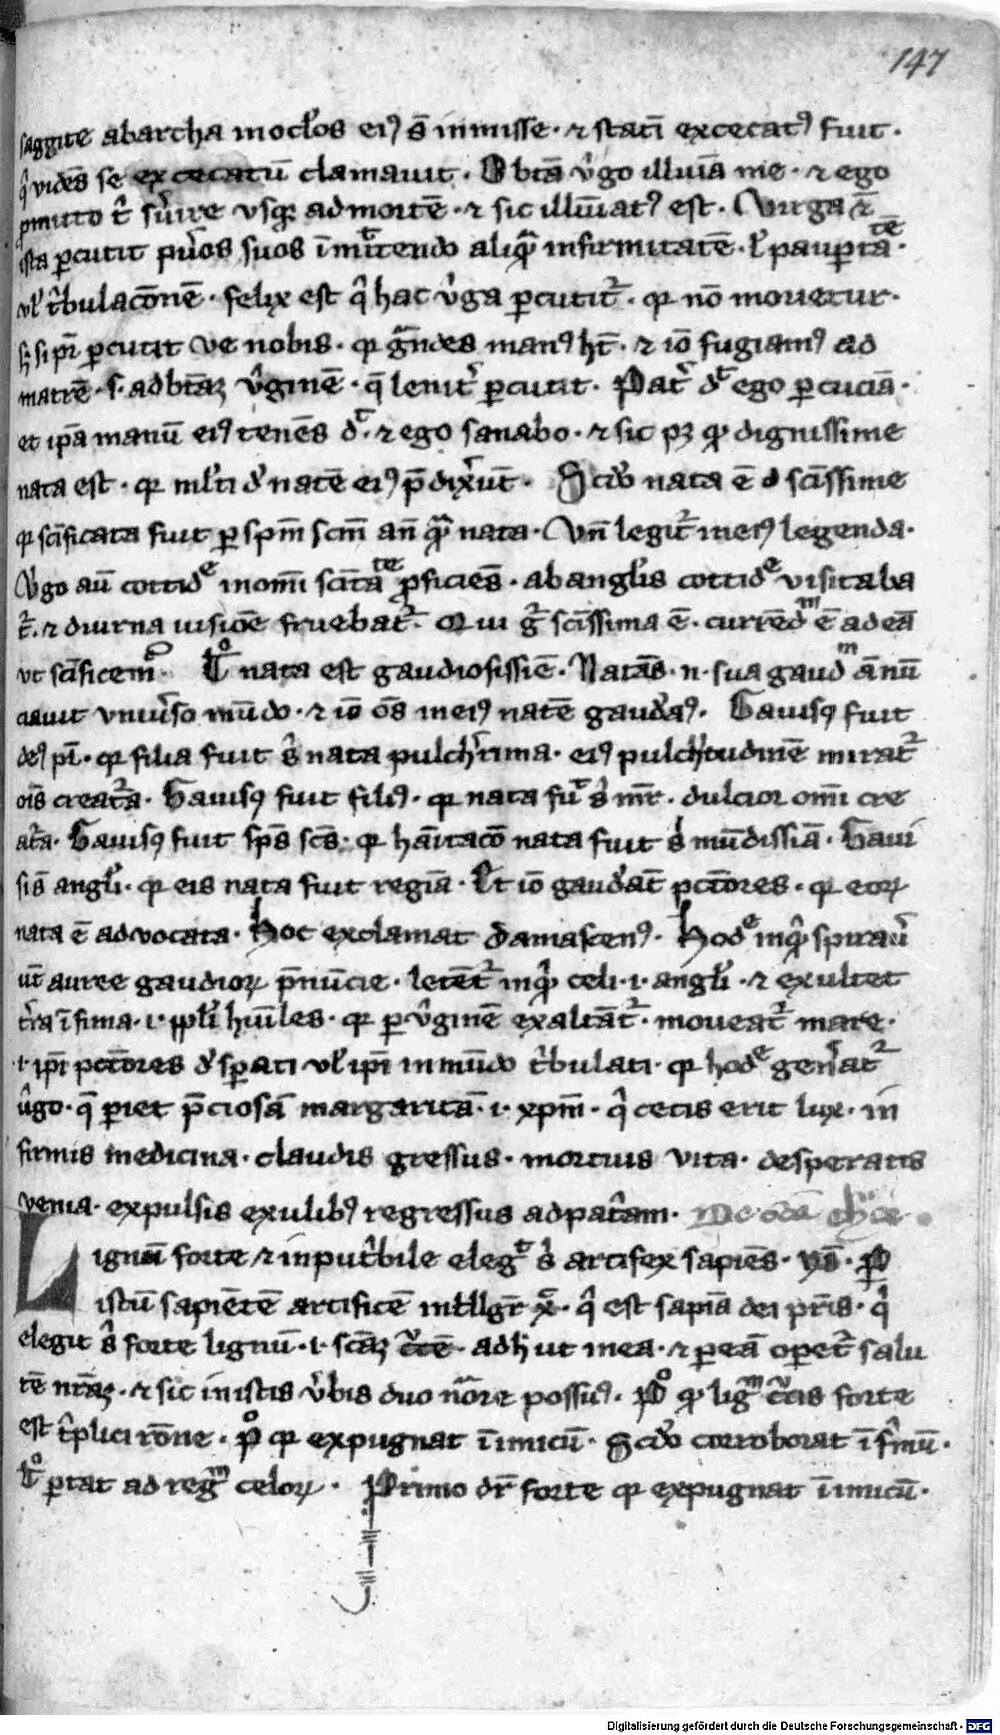 147
saggite ab archa in oc̄los ei⁹ s̄ inmisse · ⁊ statī excecat⁹ fuit ·
q̄ vidēs se excecatū clamauit · O btā v̓go illuīa me · ⁊ ego
p̄mitto t̄ s̓uire vsqꝫ ad mortē · ⁊ sic illuīat⁹ est · Virga
ista ꝑcutit pu̓os suos īmittendo aliq̄ infirmitatē · l̓ pauꝑtatē ·
vl̓ t̓bulacōnē · felix est q̓ hac v̓ga ꝑcutit᷑ · qꝛ nō mouetur ·
si pr̄ ꝑcutit ve nobis · qꝛ g̓ndes man⁹ ht̄ · ⁊ iō fugiam⁹ ad
matrē · s · ad btāꝫ v̓ginē · q̄ lenit̓ ꝑcutit · Pat̓ dt ego ꝑcuciā ·
et ip̄a manū ei⁹ tenēs dt · ⁊ ego sanabo · ⁊ sic pꝫ qd̓ dignissime
nata est · qꝛ ml̓ti d̓ natē ei⁹ p̄dix̓ūt · Scd̓o nata ē scīssime
qꝛ scīficata fuit ꝑ spm̄ scm̄ an̄ q̄ nata · Vn̄ legit᷑ in ei⁹ legenda ·
V̓go aū cottid̓e in om̄i scīta te ꝓficiēs · ab angl̓is cottid̓e visitaba
t᷑ · ⁊ diurna uisiōe fruebat᷑ · Qui g̓ scīssima ē · curred̄m ē ad eā
vt scīficem᷑ · T̊ nata est gaudiosissīe · Natās · n · sua gaudm ānū
ciauit vniu̓so mūdo · ⁊ iō ōs in ei⁹ natē gaud̓a⁹ · Gauisꝯ fuit
de⁹ pr̄ · qꝛ filia fuit s̓ nata pulch̓rima · ei⁹ pulch̓tudinē mirat᷑
ois creat̓a · Gauisꝯ fuit fili⁹ · qꝛ nata fūt s̓ mr̄ · dulcior om̄i cre
at̓a · Gauisꝯ fuit sp̄s scs̄ · qꝛ hāitacō nata fuit s̓ mūdissīa · Gaui
si s̄ angl̓i · qꝛ eis nata fuit regīa · Et iō gaud̓at̄ pctōres · qꝛ eoꝝ
nata ē aduocata · Hoc exclamat damascen⁹ · Hod̓e inq̓ spirau̓
ūt auree gaudioꝝ p̄nūcie · letēt᷑ inq̓ celi · i · angl̓i · ⁊ exultet
t̓ra īfima · i · ppl̓i hūiles · qꝛ ꝑ v̓ginē exaltāt᷑ · moueat᷑ mare ·
· i · ip̄i pctōres d̓sꝑati vl̓ ip̄i in mūdo t̓bulati · qꝛ hod̓e gen̓at᷑
v̓go · q̄ ꝑiet p̄ciosā margaritā · i · xpm̄ · q̓ cecis erit lux · in
firmis medicina · claudis gressus · mortuis vita · desperatis
venia · expulsis exulib⁹ regressus ad pat̓am ·
Lignū forte ⁊ input̓bile elegt s̓ artifex sapiēs · ys̄ ·
istū sapiētē artificē intllgr̄ xp̄ · q̓ est sapīa dei pr̄is · q̓
elegit s̓ forte lignū · i · scāꝫ c̓cē · adh̓ ut in ea · ⁊ ꝑ eā oꝑet᷑ salu
tē nr̄aꝫ · ⁊ sic in istis v̓bis duo nōre possu⁹ · P̊ qd̓ ligm̄ c̓cis forte
est t̓plici rōne · p̊ qꝛ expugnat īimicū · Scd̓o corroborat īf̓mū ·
T̊ portat ad regm̄ celoꝝ · Primo dr̄ forte qꝛ expugnat īimicū ·
Digitalisierung gefördert durch die Deutsche Forschungsgemeinschaft - DFG